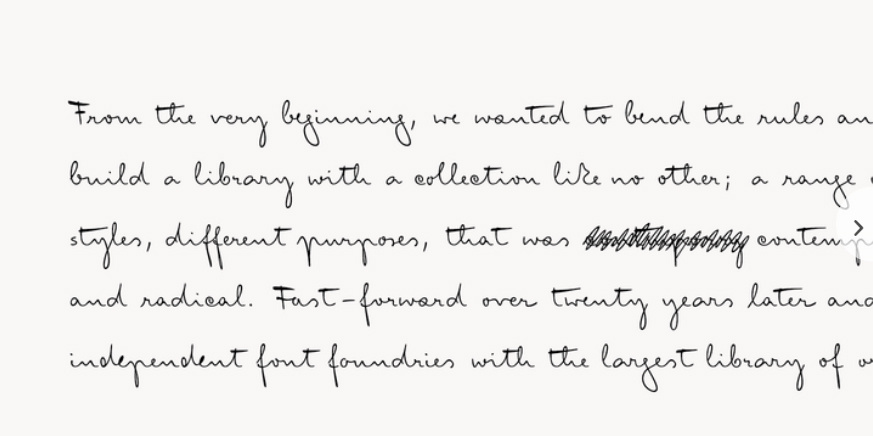 From the very beginning, we wanted to bend the rules an
build a library with a collection like no other; a range
styles, different purposes, that was contem
and radical. Fast-forward over twenty years later and
independent font foundries with the largest library of